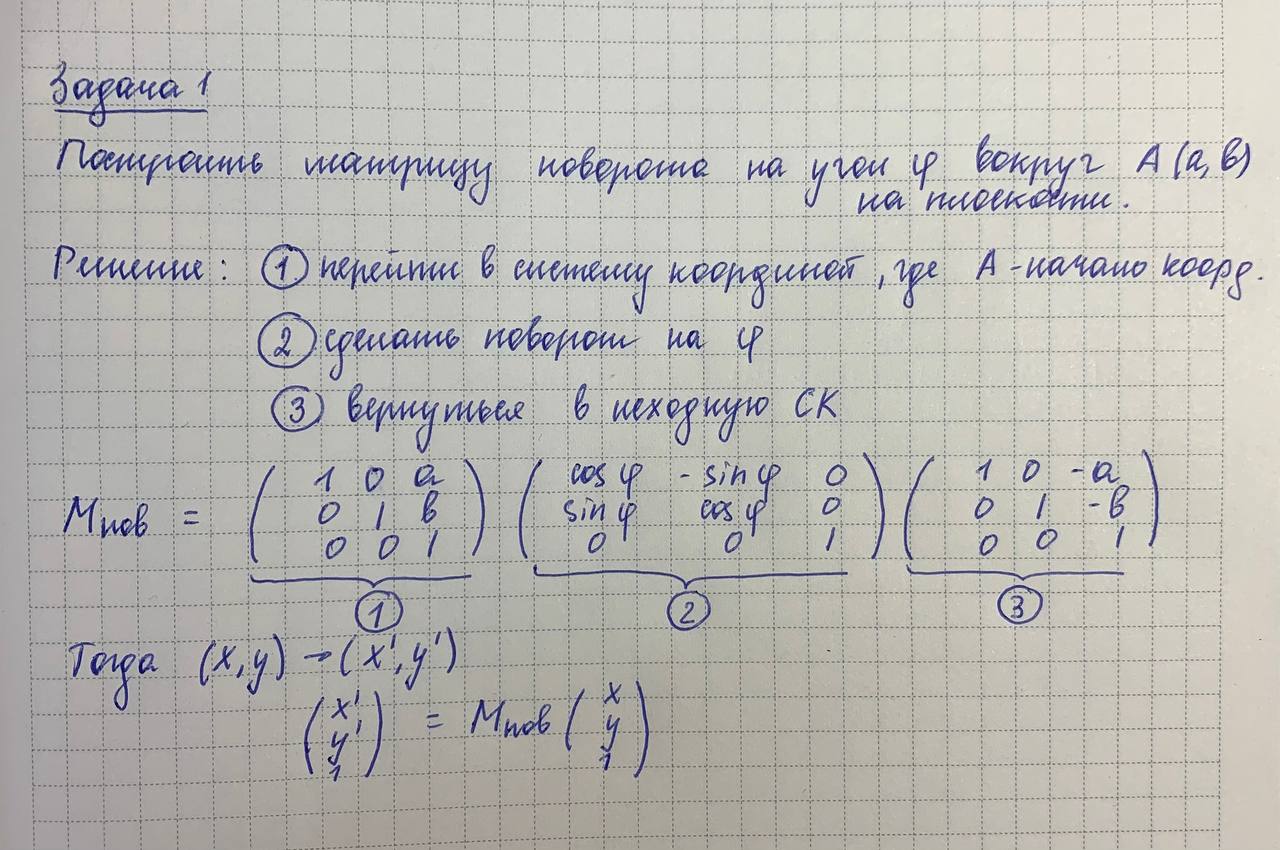 Задача 1
Построить матрицу поворота на угол φ вокруг A(a,b)
на плоскости.
Решение: ① перейти в систему координат, где A - начало коорд.
② сделать поворот на φ
③ вернуться в исходную СК
Mпов = ( 1 0 a ) ( cos φ - sin φ 0 ) ( 1 0 -a )
( 0 1 b ) ( sin φ cos φ 0 ) ( 0 1 -b )
( 0 0 1 ) ( 0 0 1 ) ( 0 0 1 )
① ② ③
Тогда (x,y) → (x',y')
( x' ) = Mпов ( x )
( y' ) ( y )
( 1 ) ( 1 )